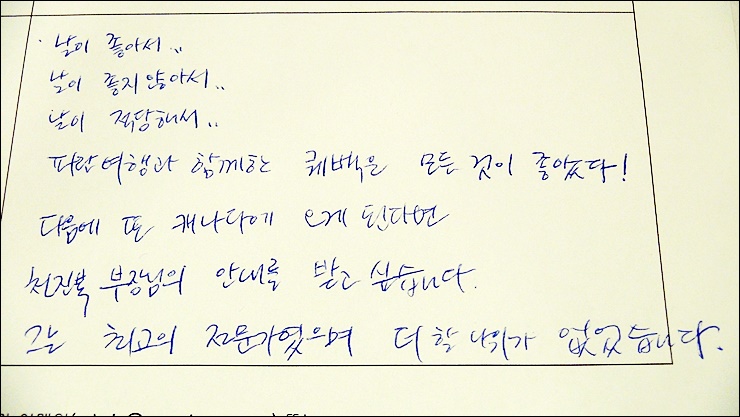 날이 좋아서..
날이 좋지않아서..
날이 적당해서..
파란여행과 함께한 퀘벡은 모든 것이 좋았다!
다음에 또 캐나다에 오게 된다면
천진복 부장님의 안내를 받고 싶습니다.
그는 최고의 전문가였으며 더할 나위가 없었습니다.